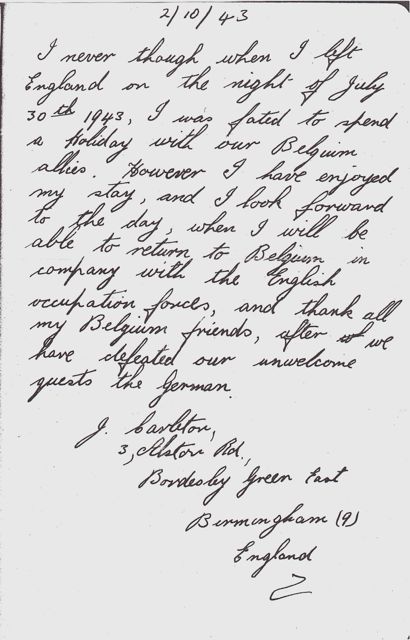 2/10/43
I never though when I left
England on the night of July
30th 1943, I was fated to spend
a Holiday with our Belgium
allies. However I have enjoyed
my stay, and I look forward
to the day, when I will be
able to return to Belgium in
company with the English
occupation forces, and thank all
my Belgium friends, after we
have defeated our unwelcome
guests the German.
J. Carleton,
3, Alston Rd.,
Bordesley Green East
Birmingham (9)
England